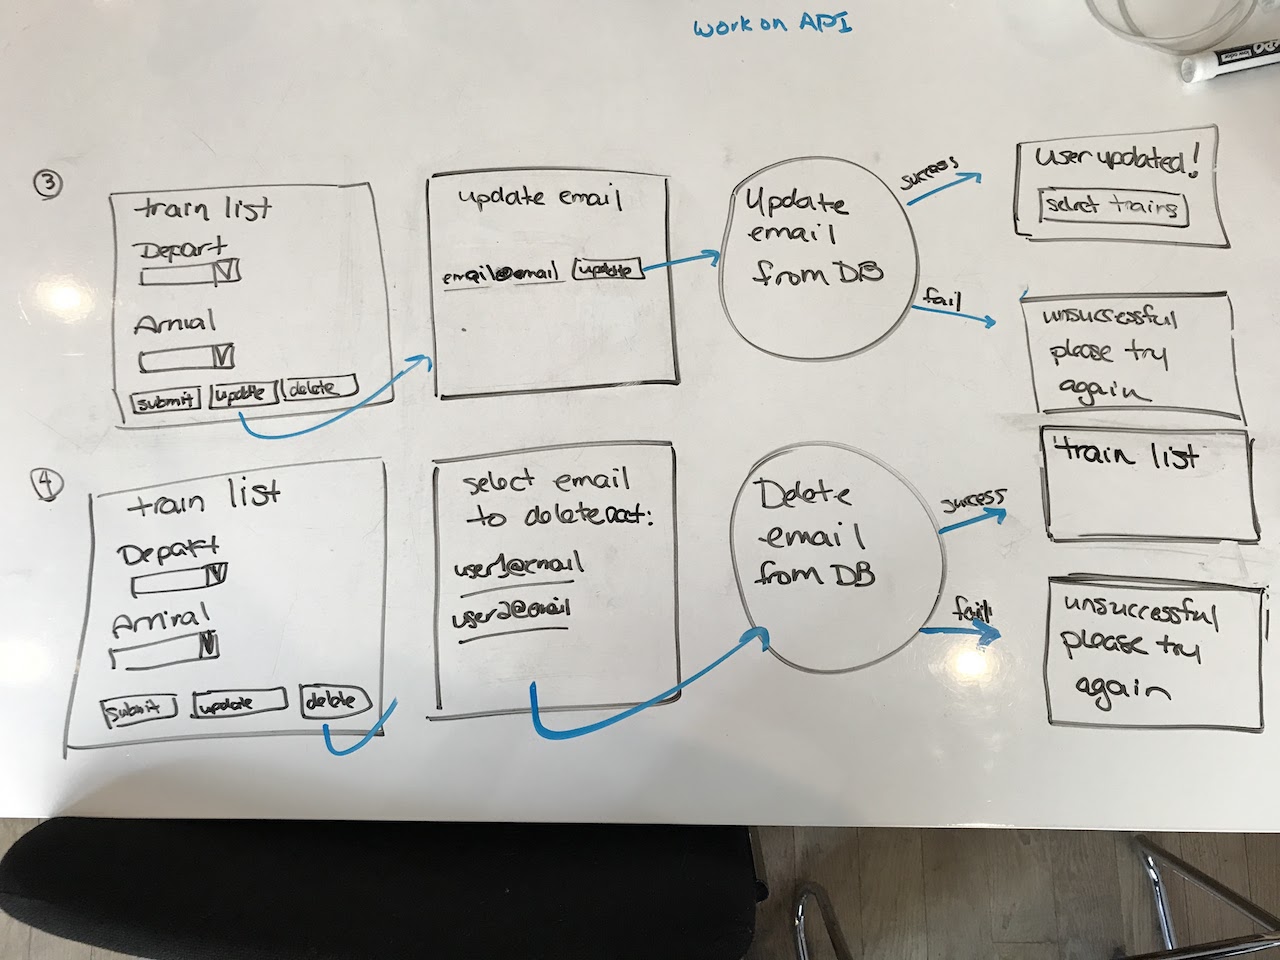 work on API
3
train list
Depart
V
Arrival
V
submit update delete
update email
email@email update
Update
email
from DB
success
fail
User updated!
select trains
unsuccessful
please try
again
4
train list
Depart
V
Arrival
V
submit update delete
select email
to delete acct:
user1@email
user2@email
Delete
email
from DB
success
fail
train list
unsuccessful
please try
again
low odor